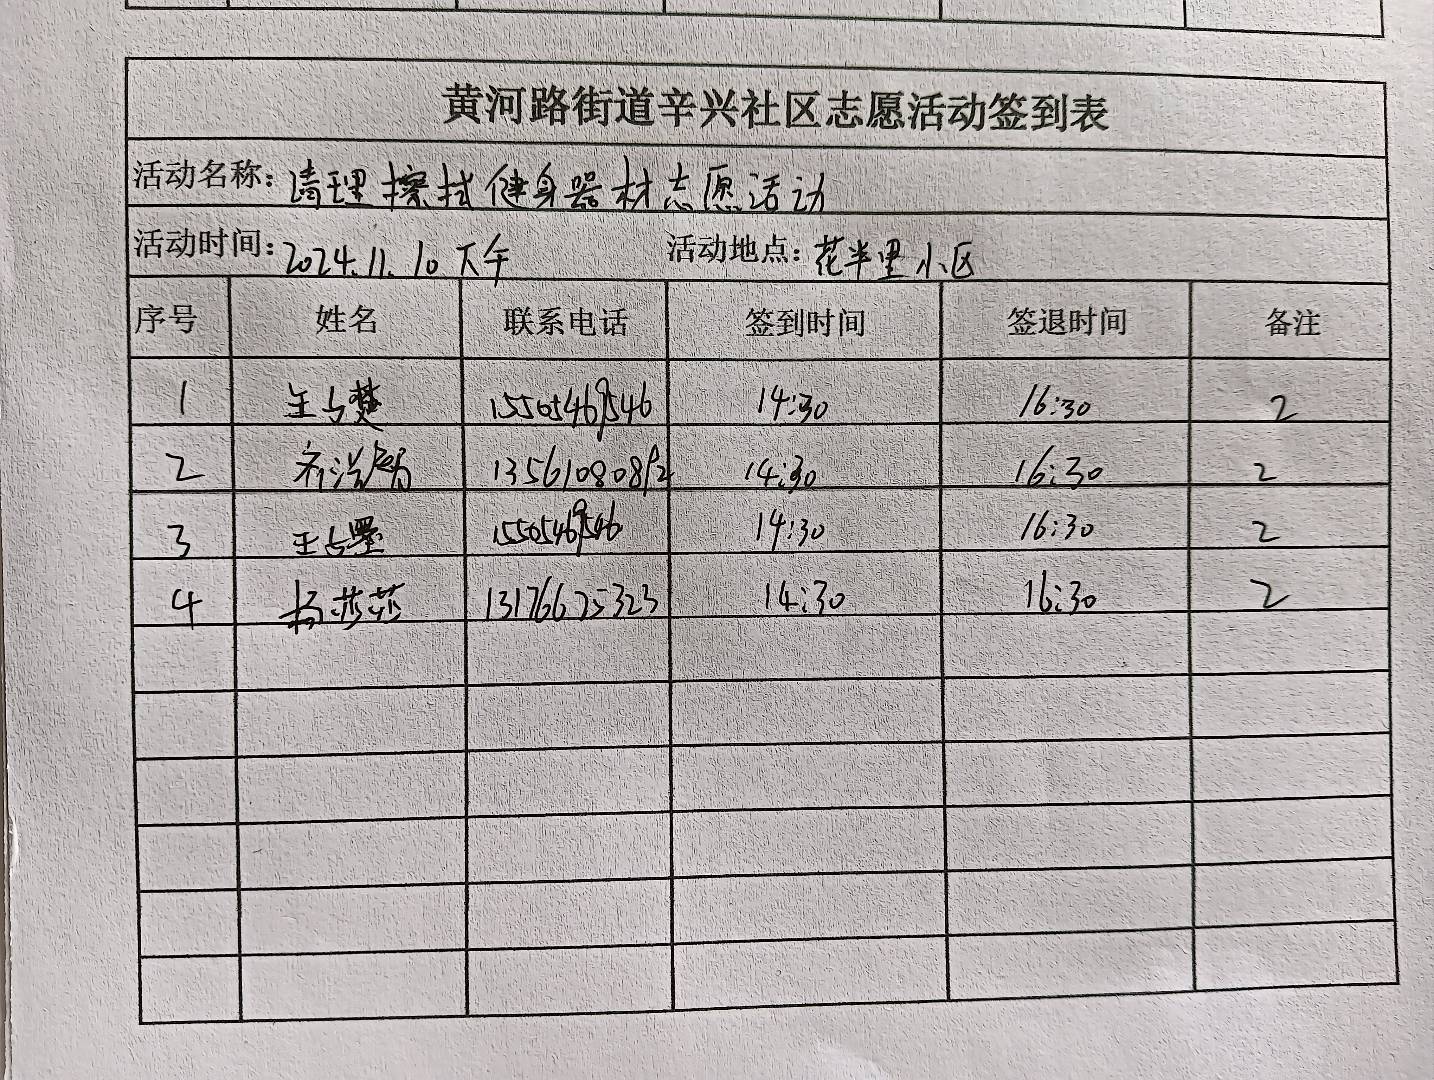 黄河路街道辛兴社区志愿活动签到表
活动名称：清理擦拭健身器材志愿活动
活动时间：2024.11.10下午 活动地点：花半里小区
序号 姓名 联系电话 签到时间 签退时间 备注
1 王占楚 15505469546 14:30 16:30 2
2 14:30 16:30 2
3 王占墨 15505469546 14:30 16:30 2
4 杨莎莎 13176675323 14:30 16:30 2